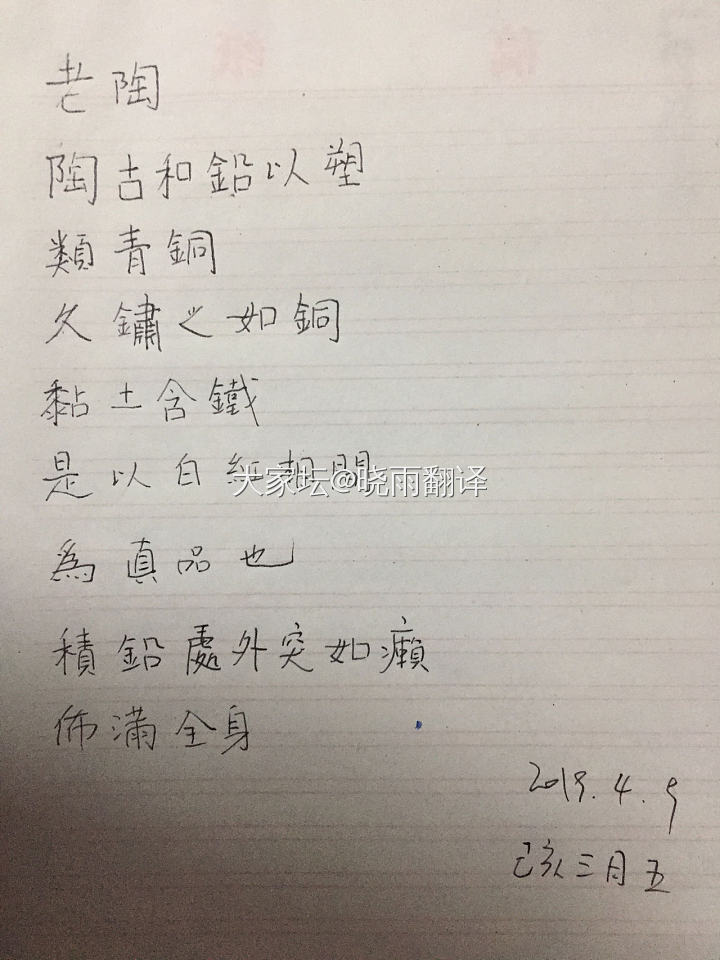 老陶
陶古和鉛以塑
類青銅
久鏽之如銅
黏土含鐵
是以白紅相間
大家坛@晓雨翻译
為真品也
積鉛處外突如癩
佈滿全身
2019.4.9
己亥三月五